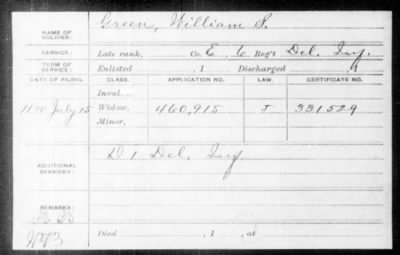 NAME OF SOLDIER: Green, William S.
SERVICE: Late rank, Co. E, 6 Reg't Del. Inf.
TERM OF SERVICE: Enlisted , 1 Discharged , 1
DATE OF FILING. CLASS. APPLICATION NO. LAW. CERTIFICATE NO.
Inval.
1890 July 15 Widow, 460,915 J 331529
Minor,
ADDITIONAL SERVICES: D 1 Del. Inf
REMARKS:
Died , 1 , at